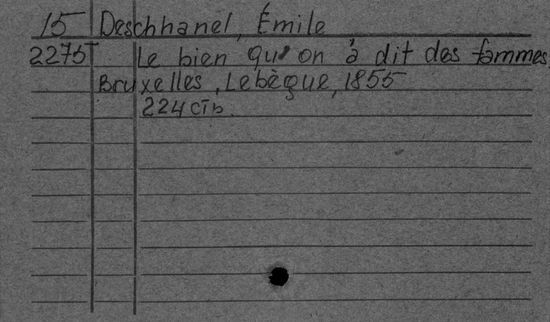 15 Deschhanel, Émile
2275 Le bien qu'on à dit des femmes
Bruxelles, Lebègue, 1855
224 cīb.